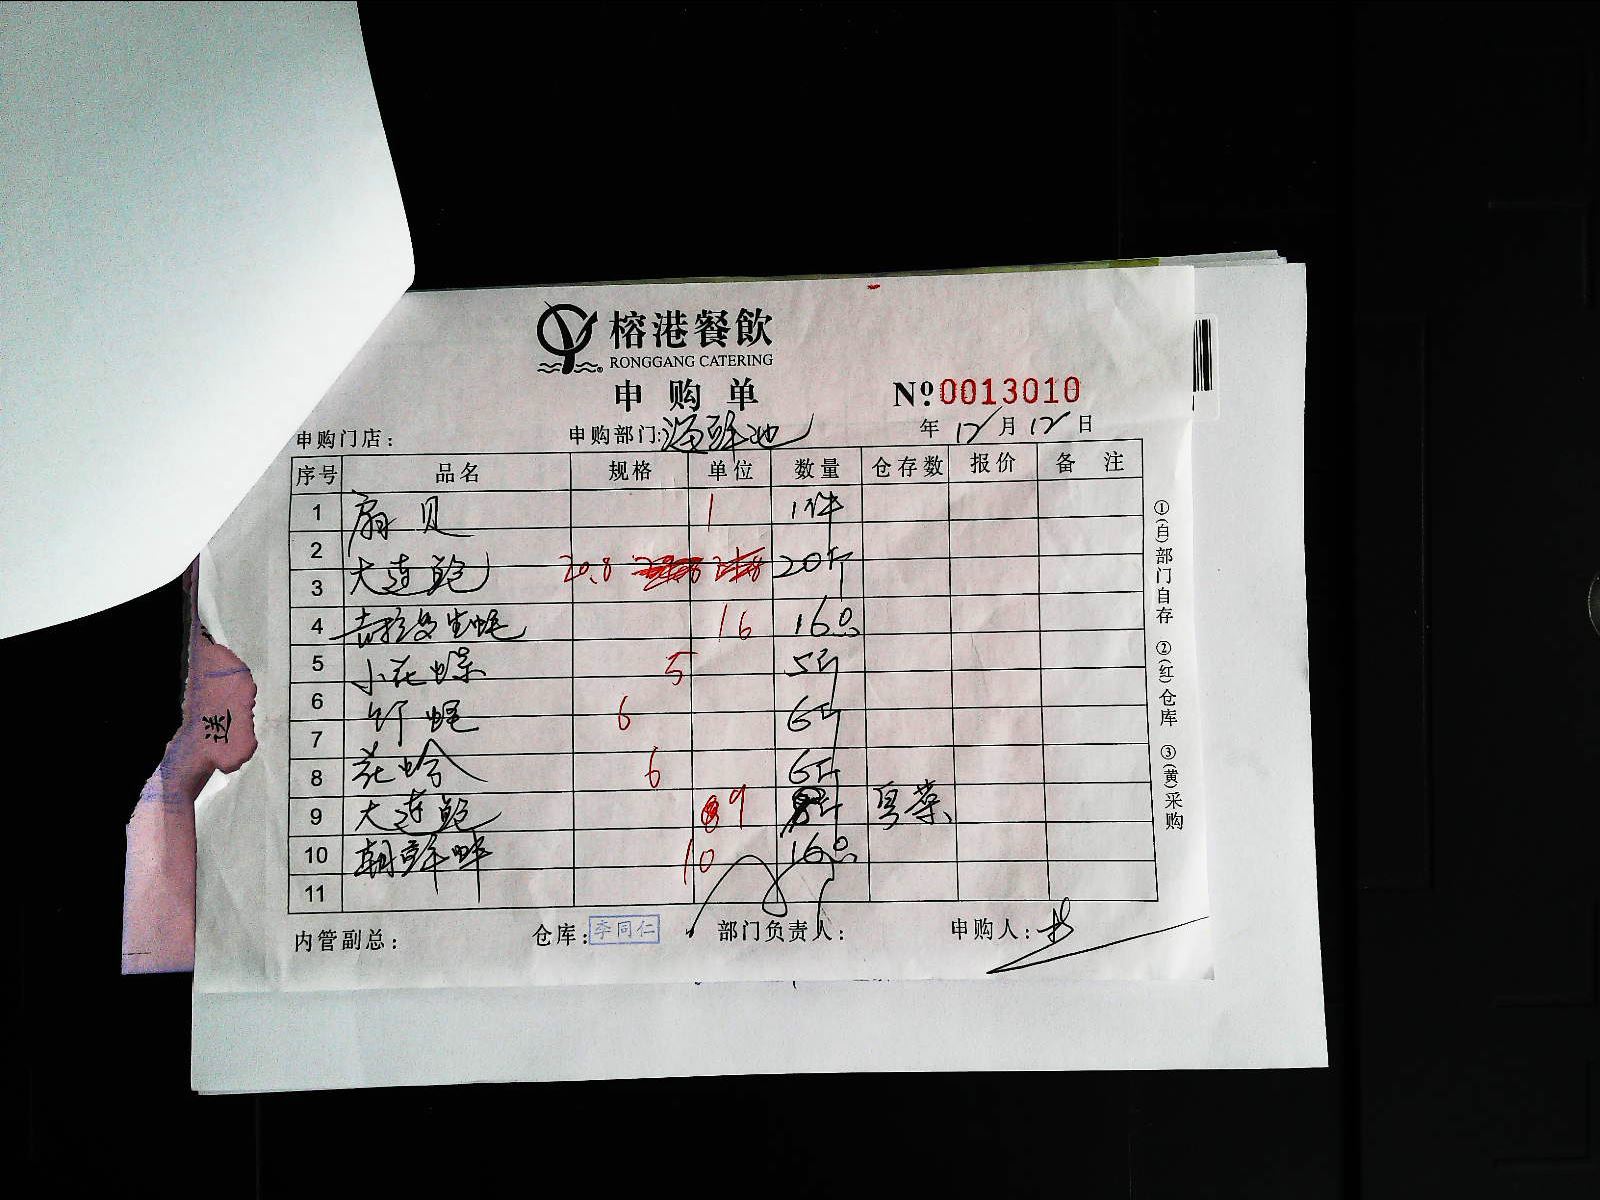 榕港餐飲
RONGGANG CATERING
申购单
№0013010
申购门店: 申购部门:海鲜池 年12月12日
序号 品名 规格 单位 数量 仓存数 报价 备注
1 扇贝 1 1件
2
3 大连鲍 20.8 20斤
4 吉拉多生蚝 16 16只
5 小花螺 5 5斤
6 竹蛏 6 6斤
7
8 花蛤 6 6斤
9 大连鲍 9
10 朝鲜蚌 10 16只
11
内管副总: 仓库:李同仁 部门负责人: 申购人:
①(白)部门自存 ②(红)仓库 ③(黄)采购
送